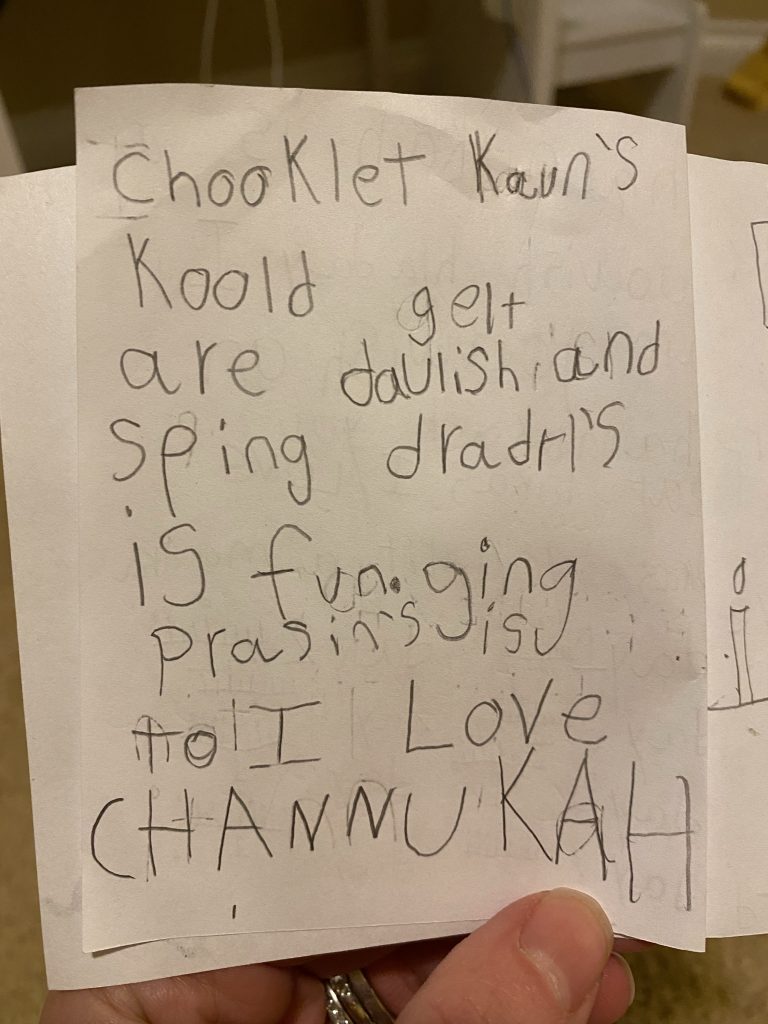 Chooklet Kaun's
Koold gelt
are daulish, and
sping dradrl's
is fun. ging
prasin's is
to I Love
CHANNUKAH